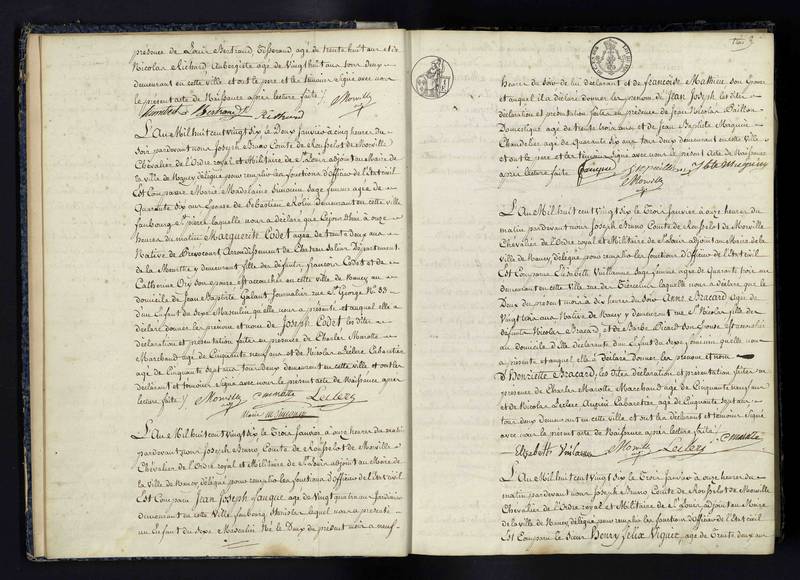 présence de Louis Bertrand, Tisserand, agé de trente huit ans et de
Nicolas Richard Aubergiste agé de Vingt huit ans tous deux
demeurant en cette ville et ont le pere et les témoins Signé avec nous
le présent acte de Naissance après lecture faite /
Bertrand Richard Morville
L'An Mil huit cent vingt six le Deux janvier à cinq heures du
soir pardevant nous Joseph Bruno Comte de Rousselot de Morville
Chevalier de l'Ordre royal et Militaire de St Louis adjoint au Maire de
la ville de Nancy délégué pour remplir les fonctions d'Officier de l'Etat civil
Est Comparue Marie Madelaine Simonin Sage femme agée de
Quarante six ans Epouse de Sébastien Kolin Demeurant en cette ville
faubourg St pierre laquelle nous a déclaré que Cejourd'hui à onze
heures du matin Marguerite Codet agée de trente deux ans
Native de Arrondissement de Chateau Salins Département
de la Meurthe y demeurant fille des défunts françois Codet et de
Catherine Son epouse est accouchée en cette ville de Nancy au
domicile de Jean Baptiste Galant Journalier rue St George No 33
d'un Enfant du Sexe Masculin qu'elle nous a présenté et auquel elle a
déclaré donner les prénom et nom de Joseph Codet les dites
déclaration et présentation faites en présence de Charles Marotte
Marchand agé de Cinquante neuf ans et de Nicolas Leclerc Cabaretier
agé de Cinquante sept ans tous deux demeurant en cette ville et ont les
déclarant et témoins Signé avec nous le présent acte de Naissance après
lecture faite / Morville C marotte Leclerc
Marie Simonin
L'An Mil huit cent Vingt six le Trois Janvier à onze heures du matin
pardevant nous Joseph Bruno Comte de Rousselot de Morville
Chevalier de l'Ordre royal et Militaire de St Louis adjoint au Maire de
la Ville de Nancy délégué pour remplir les fonctions d'Officier de l'Etat civil
Est Comparu Jean Joseph fouquet agé de Vingt quatre ans Jardinier
demeurant en cette Ville faubourg Stanislas lequel nous a présenté
un Enfant du Sexe Masculin Né le Deux du présent mois à neuf
heures du soir de lui déclarant et de françoise Mathieu son Epouse
et auquel il a déclaré donner les prénoms de Jean Joseph les dites
déclaration et présentation faites en présence de Jean Nicolas
Domestique agé de trente trois ans et de Jean Baptiste
Chandelier agé de Quarante Six ans tous deux demeurant en cette ville
et ont le pere et les témoins Signé avec nous le présent Acte de Naissance
après lecture faite
Morville
L'An Mil huit cent Vingt six le Trois Janvier à onze heures du
matin pardevant nous Joseph Bruno Comte de Rousselot de Morville
Chevalier de l'Ordre royal et Militaire de St Louis adjoint au Maire de la
Ville de Nancy délégué pour remplir les fonctions d'Officier de l'Etat civil
Est Comparue Elisabeth Vuillaume Sage femme agée de Quarante trois ans
demeurant en cette Ville rue laquelle nous a déclaré que le
Deux du présent mois à dix heures du soir Anne Bracard agée de
Vingt trois ans Native de Nancy y demeurant rue St Nicolas fille des
défunts Nicolas Bracard, et de Barbe Picard Son Epouse est accouchée
au domicile d'elle déclarante d'un Enfant du Sexe féminin qu'elle nous
a présenté et auquel elle a déclaré donner les prénom et nom
d'Henriette Bracard, les dites déclaration et présentation faites en
présence de Charles Marotte Marchand agé de Cinquante neuf ans
et de Nicolas Leclerc Ancien Cabaretier agé de Cinquante Sept ans
tous deux demeurant en cette Ville et ont les déclarant et témoins Signé
avec nous le présent acte de Naissance après lecture faite / C marotte
Elizabeth Vuillaume Morville Leclerc
L'An Mil huit cent Vingt six le Trois Janvier à onze heures du
matin pardevant nous Joseph Bruno Comte de Rousselot de Morville
Chevalier de l'Ordre royal et Militaire de St Louis adjoint au Maire
de la Ville de Nancy délégué pour remplir les fonctions d'Officier de l'Etat civil
Est Comparu le Sieur Henry felix Viguet, agé de Trente deux ans